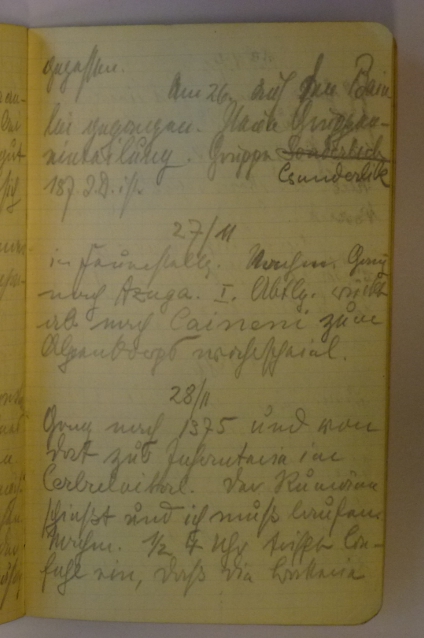 gegessen.
Am 26. auf den Bai
lui gegangen. Neue Gruppen-
einteilung. Gruppe Sonderlich
Csunderlik
187. I.D. ist
27/11
in Feuerstellg. Nachm. Gang
nach Azuga. I. Abtlg. rückt
ab nach Caineni zum
Alpenkorps
28/11
Gang nach 1375 und von
dort zur Infanterie im
Cerbului Der Rumäne
schießt und ich muß laufen
Nachm. 1/2 4 Uhr trifft Be-
fehl ein, daß die Batterie